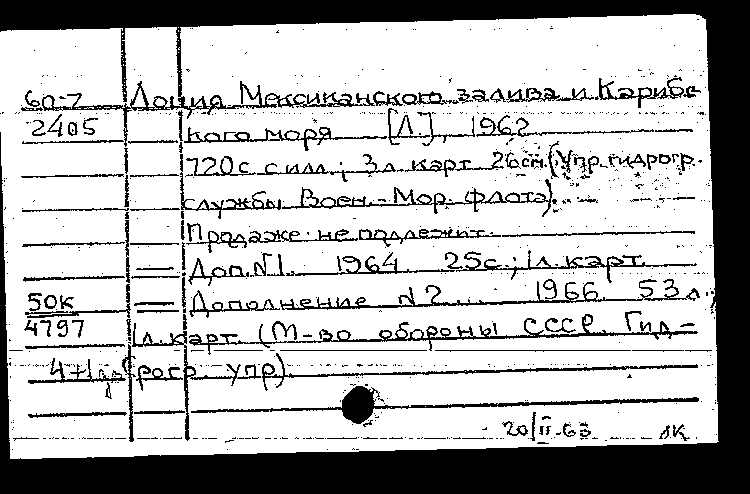 60-7 Лоция Мексиканского залива и Карибс-
2405 кого моря [Л], 1962
720с с илл.; 3л. карт 26см (Упр. гидрогр.
службы Воен.-Мор. флота).
Продаже не подлежит.
— Доп. N1. 1964. 25с.; 1л. карт.
50к — Дополнение N2... 1966. 53л.,
4797 1л. карт. (М-во обороны СССР. Гид-
4+1 рогр. упр).
20/II-63 ЛК